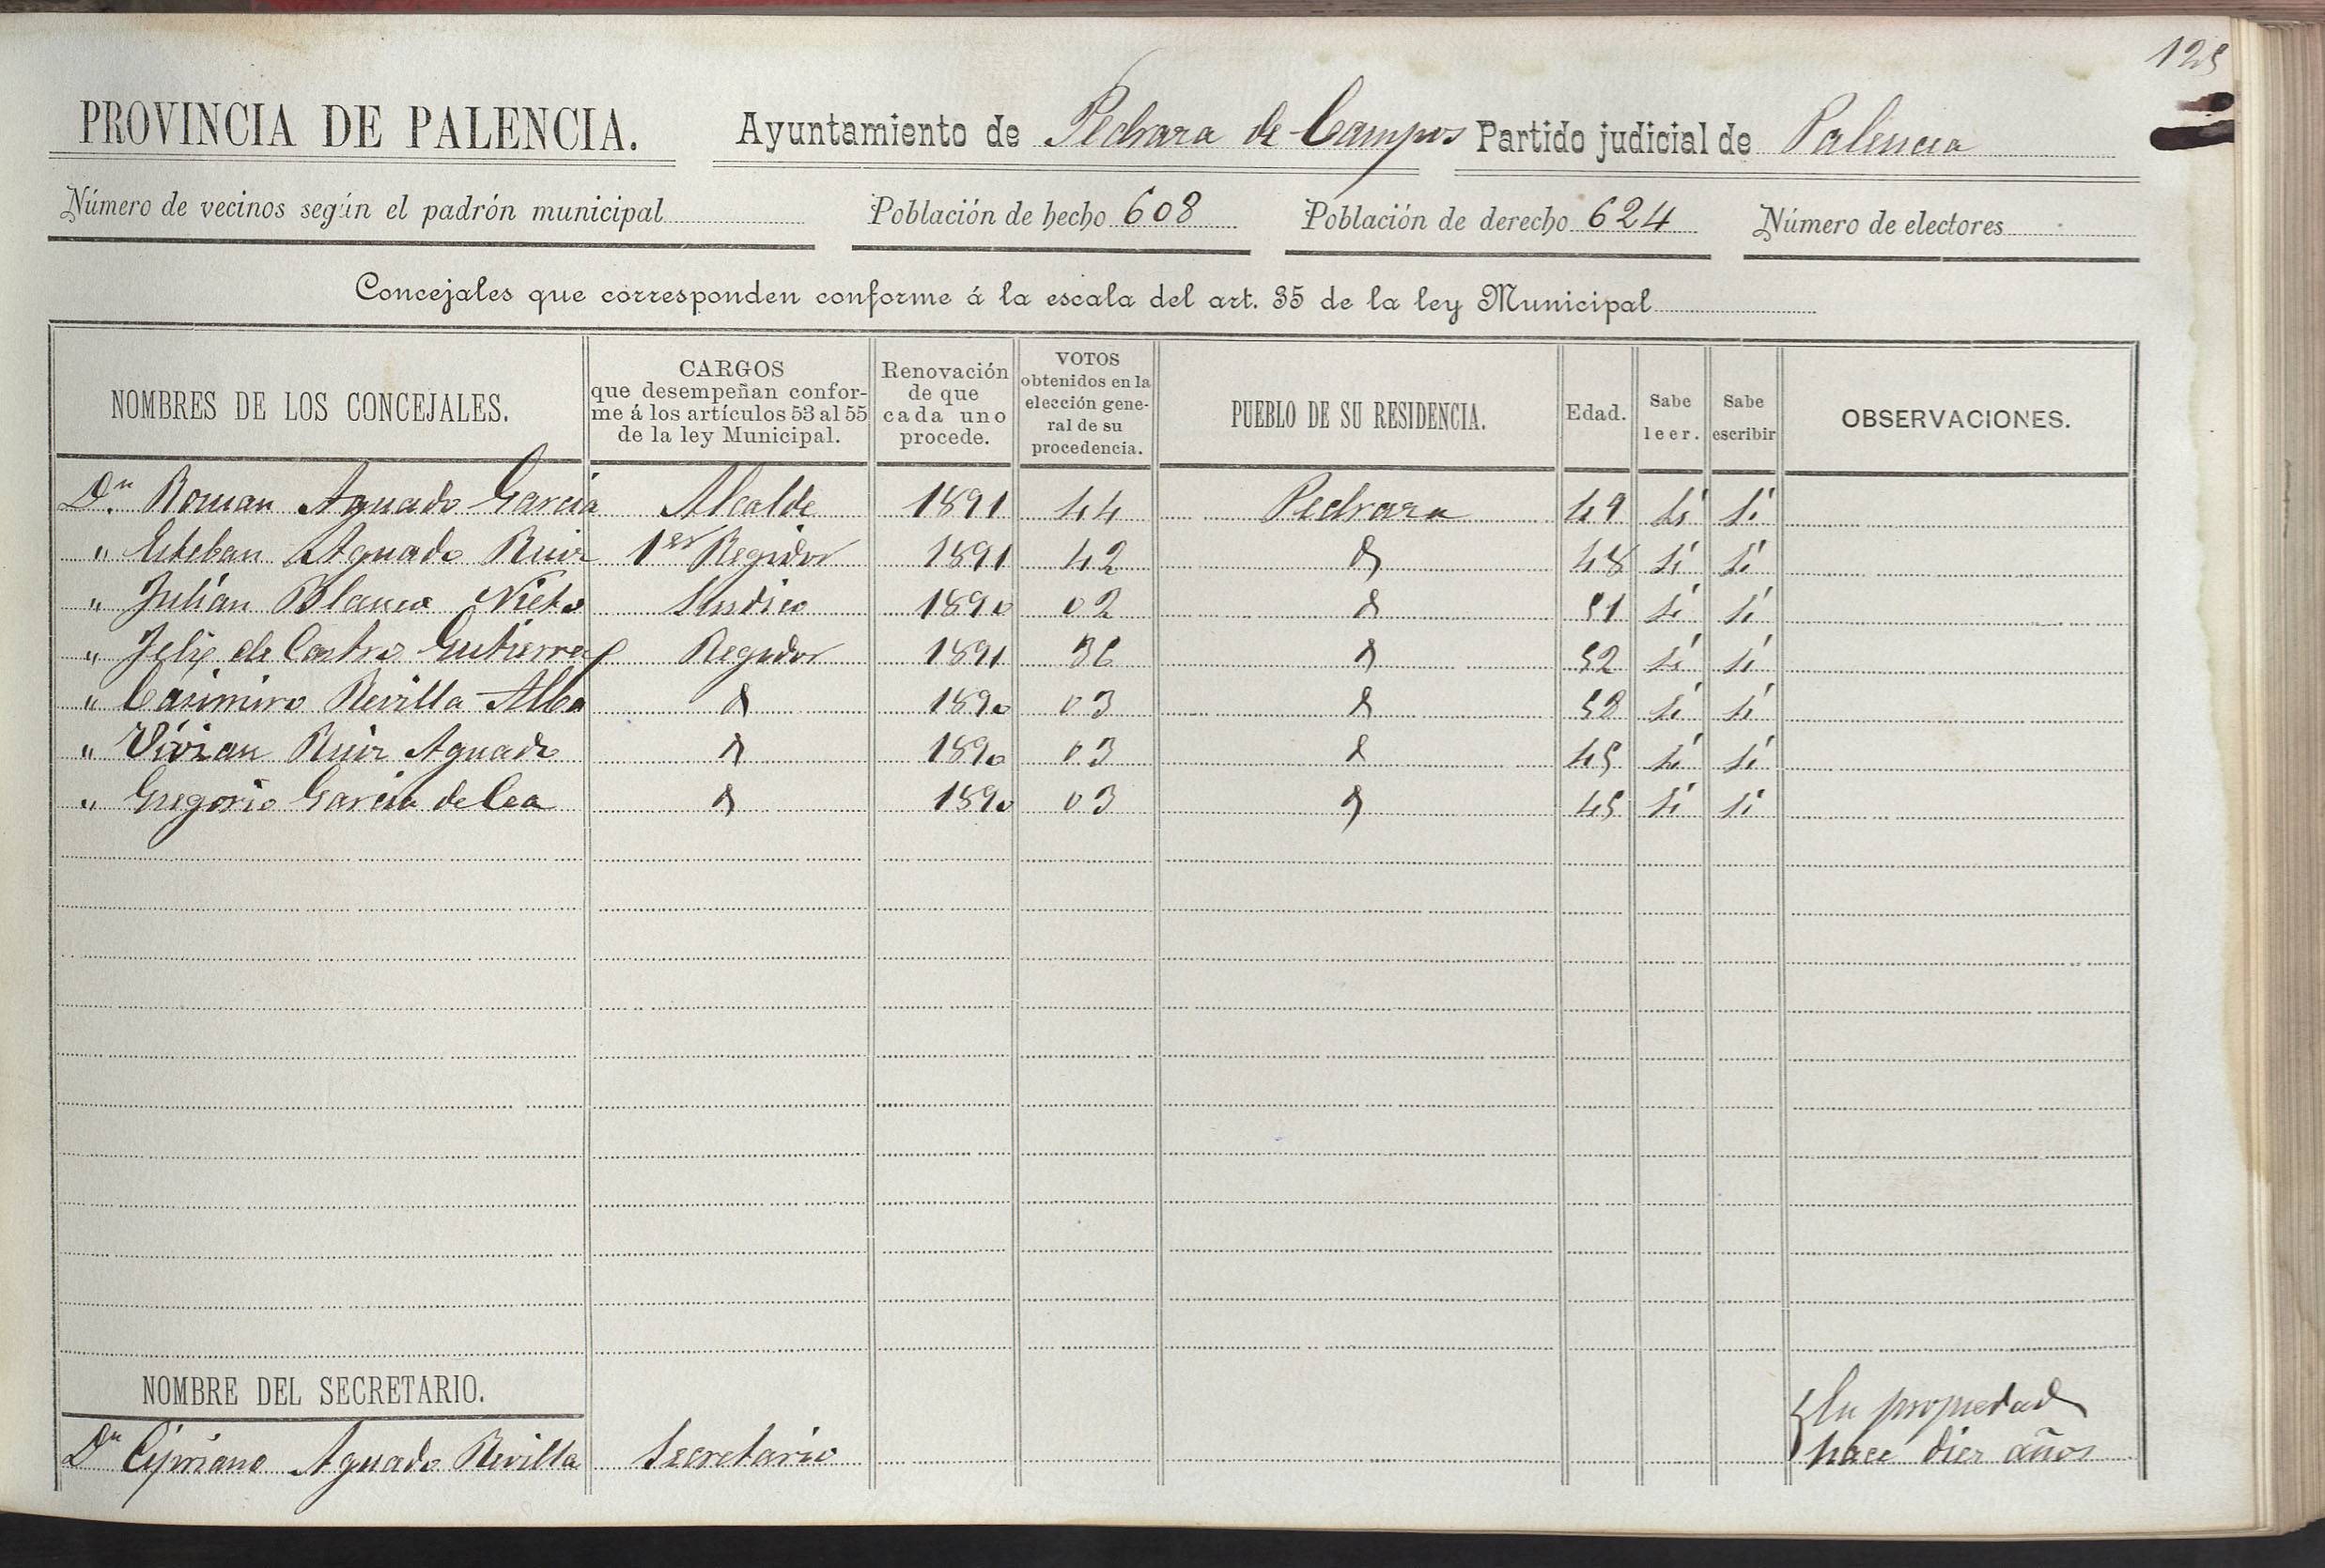 125
PROVINCIA DE PALENCIA. Ayuntamiento de Pedraza de Campos Partido judicial de Palencia
Número de vecinos según el padrón municipal Población de hecho 608 Población de derecho 624 Número de electores
Concejales que corresponden conforme á la escala del art. 35 de la ley Municipal
NOMBRES DE LOS CONCEJALES. CARGOS que desempeñan conforme á los artículos 53 al 55 de la ley Municipal. Renovación de que cada uno procede. VOTOS obtenidos en la elección general de su procedencia. PUEBLO DE SU RESIDENCIA. Edad. Sabe leer. Sabe escribir OBSERVACIONES.
Dn. Roman Aguado Garcia Alcalde 1891 44 Pedraza 49 si si
" Esteban Aguado Ruiz 1er Regidor 1891 42 " 48 si si
" Julián Blanco Nieto Sindico 1890 02 " 51 si si
" Felix de Castro Gutierrez Regidor 1891 36 " 52 si si
" Casimiro Revilla Alba " 1890 03 " 58 si si
" Vivian Ruiz Aguado " 1890 03 " 45 si si
" Gregorio Garcia de Cea " 1890 03 " 45 si si
NOMBRE DEL SECRETARIO.
Dn Cipriano Aguado Revilla Secretario En propiedad
hace diez años